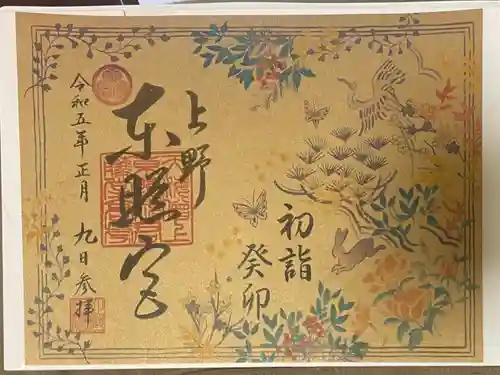 初詣
癸卯
上野
東照宮
令和五年 正月 九日参拝